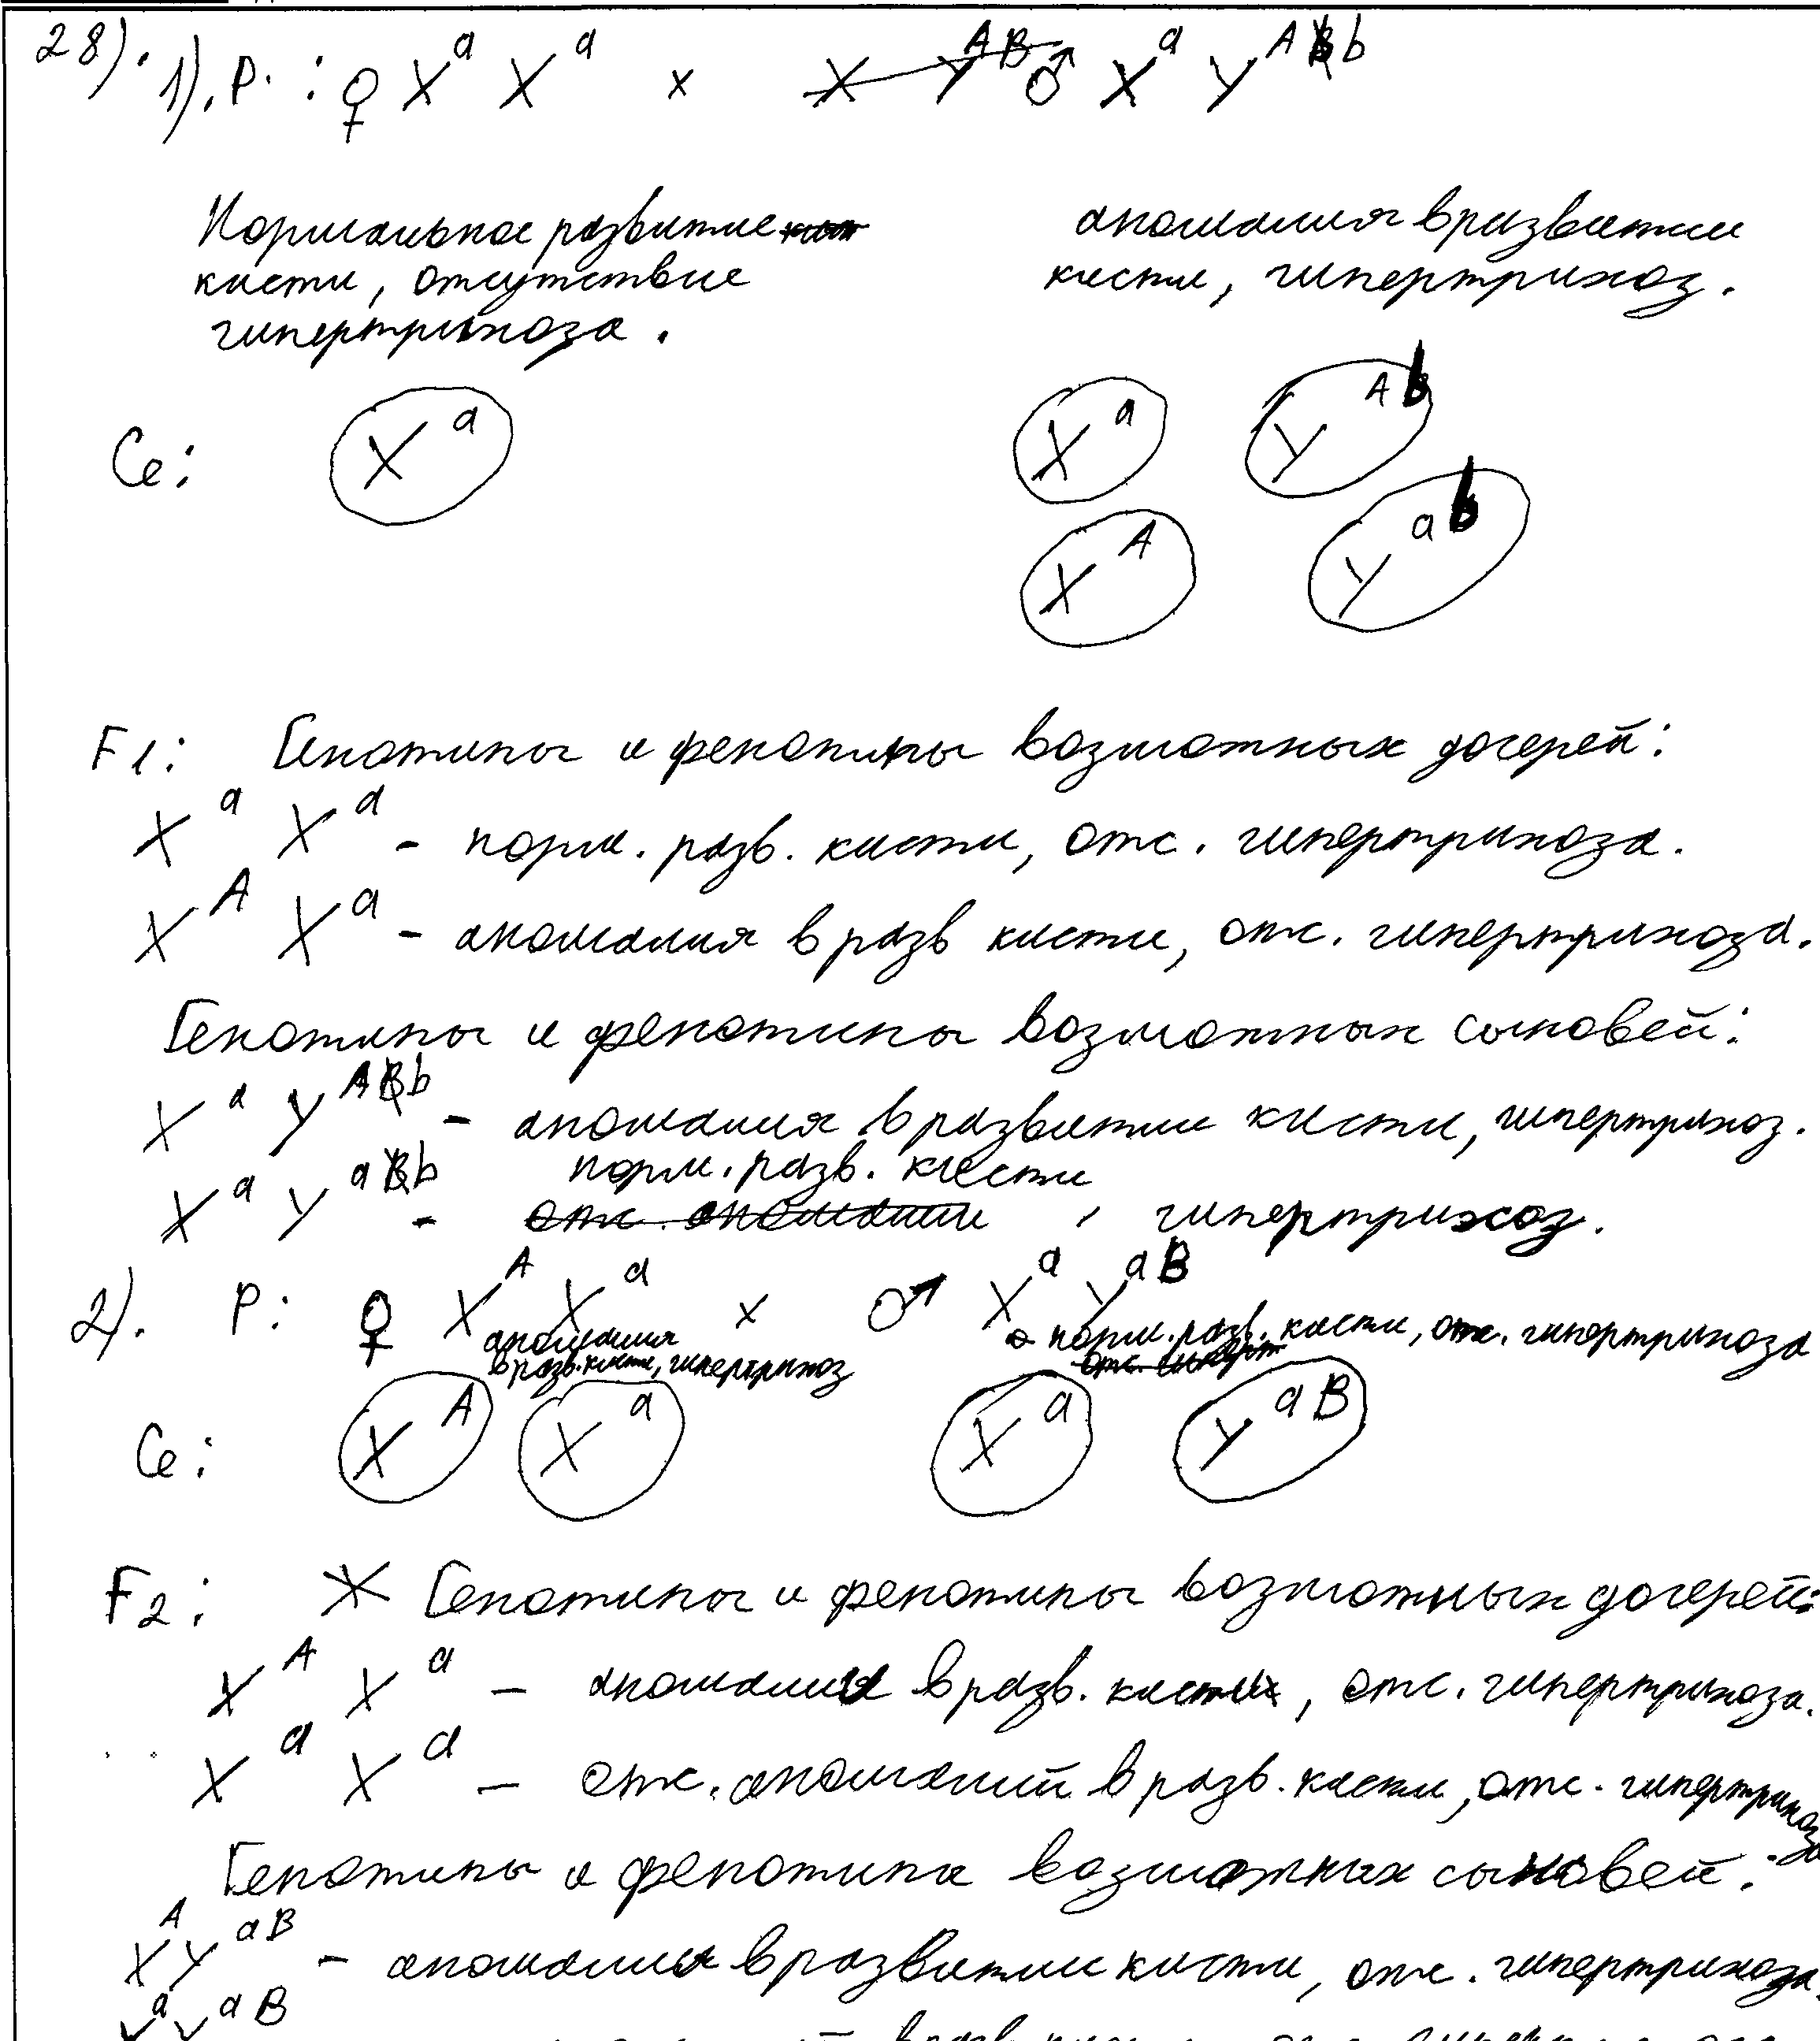 28). 1). P. : ♀ X^a X^a x X Y^AB ♂ X^a Y^Ab
Нормальное развитие
кисти, отсутствие
гипертрихоза.
аномалия в развитии
кисти, гипертрихоз.
Ce: X^a X^a Y^Ab
X^A Y^ab
F1: Генотипы и фенотипы возможных дочерей:
X^a X^a - норм. разв. кисти, отс. гипертрихоза.
X^A X^a - аномалия в разв кисти, отс. гипертрихоза.
Генотипы и фенотипы возможных сыновей:
X^a Y^Ab - аномалия в развитии кисти, гипертрихоз.
норм. разв. кисти
X^a Y^ab - отс. аномалии , гипертрихоз.
2). P: ♀ X^A X^a x ♂ X^a Y^aB
аномалия
в разв. кисти, гипертрихоз
норм. разв. кисти, отс. гипертрихоза
Ce: X^A X^a X^a Y^aB
F2: Генотипы и фенотипы возможных дочерей:
X^A X^a - аномалия в разв. кисти, отс. гипертрихоза.
X^a X^a - отс. аномалий в разв. кисти, отс. гипертрихоза.
Генотипы и фенотипы возможных сыновей:
X^A Y^aB - аномалия в развитии кисти, отс. гипертрихоза.
X^a Y^aB